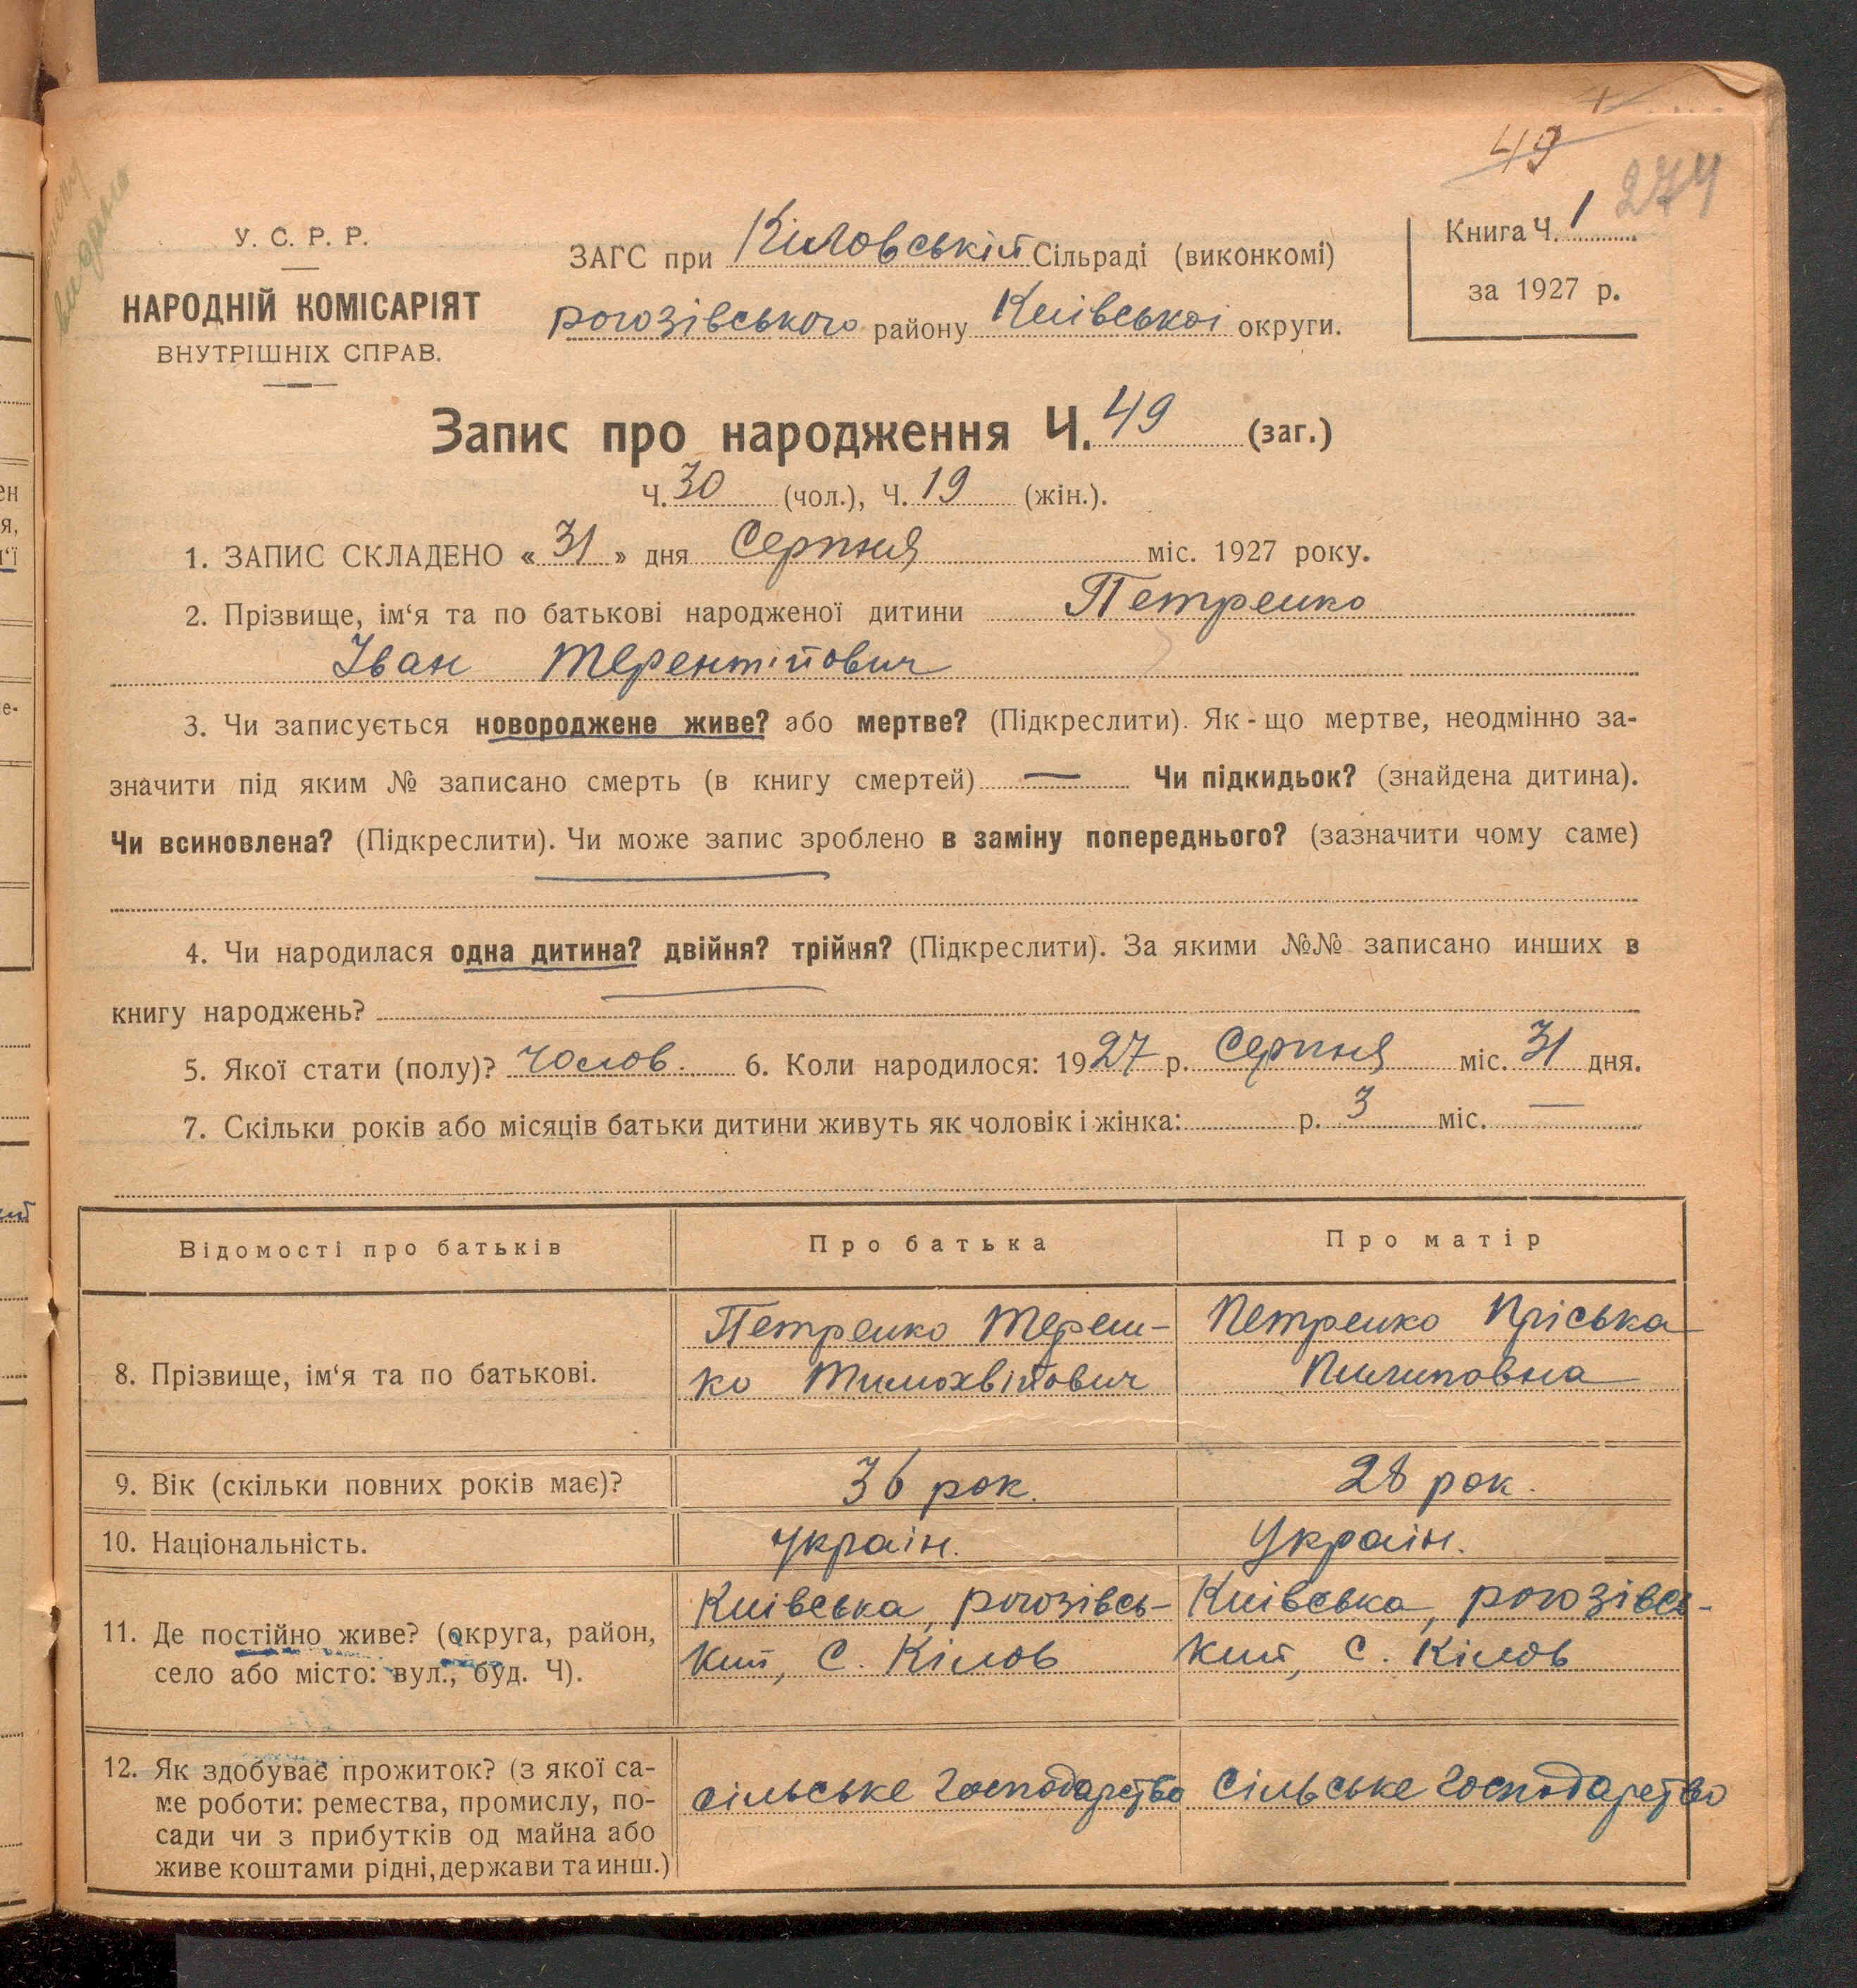 49
274
У. С. Р. Р.
НАРОДНІЙ КОМІСАРІЯТ
ВНУТРІШНІХ СПРАВ.
ЗАГС при Кіловській Сільраді (виконкомі)
рогозівського району Київської округи.
Книга Ч. 1
за 1927 р.
Запис про народження Ч. 49 (заг.)
Ч. 30 (чол.), Ч. 19 (жін.).
1. ЗАПИС СКЛАДЕНО « 31 » дня Серпня міс. 1927 року.
2. Прізвище, ім‘я та по батькові народженої дитини Петренко
Іван Терентійович
3. Чи записується новороджене живе? або мертве? (Підкреслити). Як-що мертве, неодмінно за-
значити під яким № записано смерть (в книгу смертей) — Чи підкидьок? (знайдена дитина).
Чи всиновлена? (Підкреслити). Чи може запис зроблено в заміну попереднього? (зазначити чому саме)
4. Чи народилася одна дитина? двійня? трійня? (Підкреслити). За якими №№ записано инших в
книгу народжень?
5. Якої стати (полу)? Чолов. 6. Коли народилося: 1927 р. Серпня міс. 31 дня.
7. Скільки років або місяців батьки дитини живуть як чоловік і жінка: р. 3 міс. —
Відомості про батьків Про батька Про матір
8. Прізвище, ім‘я та по батькові.
Петренко Тереш-
ко Тимохвійович
Петренко Пріська
Пилиповна
9. Вік (скільки повних років має)? 36 рок. 28 рок.
10. Національність. Україн. Україн.
11. Де постійно живе? (округа, район,
село або місто: вул., буд. Ч).
Київська, рогозівсь-
кий, С. Кілов
Київська, рогозівсь-
кий, С. Кілов
12. Як здобуває прожиток? (з якої са-
ме роботи: ремества, промислу, по-
сади чи з прибутків од майна або
живе коштами рідні, держави та инш.)
сільське господарство
Сільське господарство